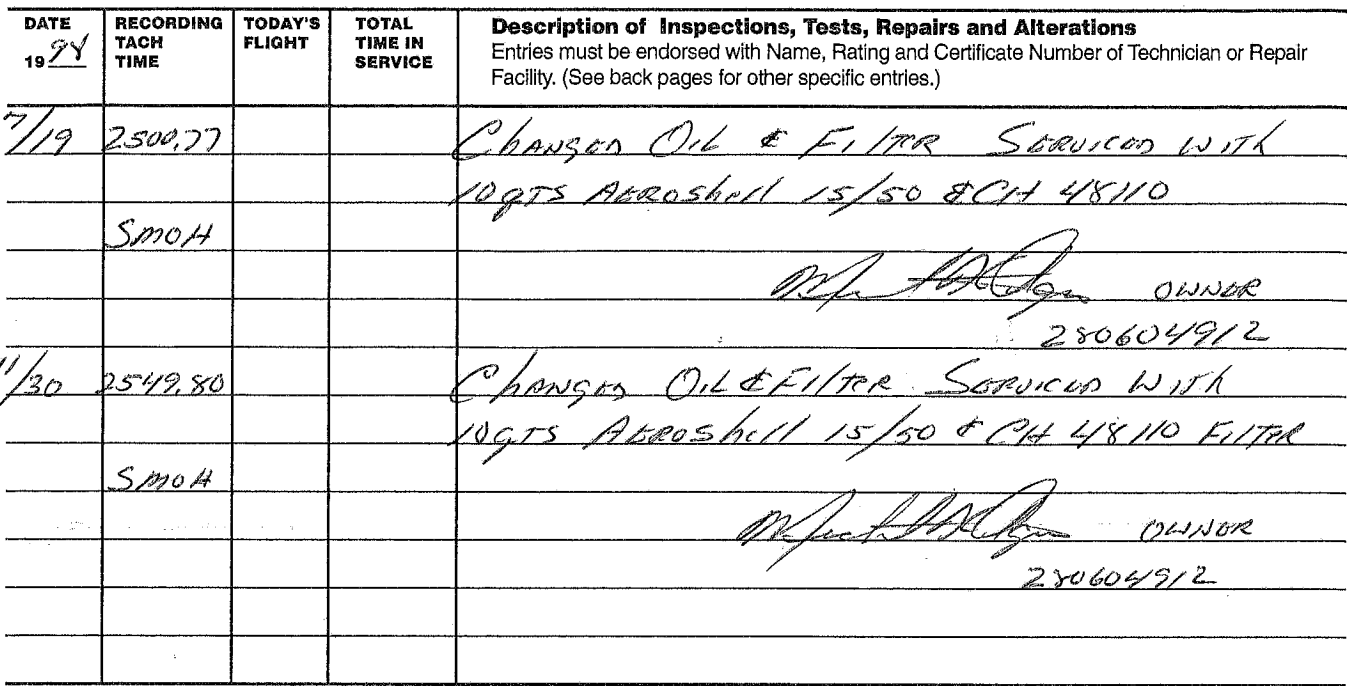 DATE RECORDING TODAY'S TOTAL Description of Inspections, Tests, Repairs and Alterations
19 94 TACH FLIGHT TIME IN Entries must be endorsed with Name, Rating and Certificate Number of Technician or Repair
TIME SERVICE Facility. (See back pages for other specific entries.)
7/19 2500.77 Changed Oil & Filter Serviced With
10 qts AeroShell 15/50 & CH 48110
SMOH
OWNER
280604912
11/30 2549.80 Changed Oil & Filter Serviced With
10 qts AeroShell 15/50 & CH 48110 Filter
SMOH
OWNER
280604912